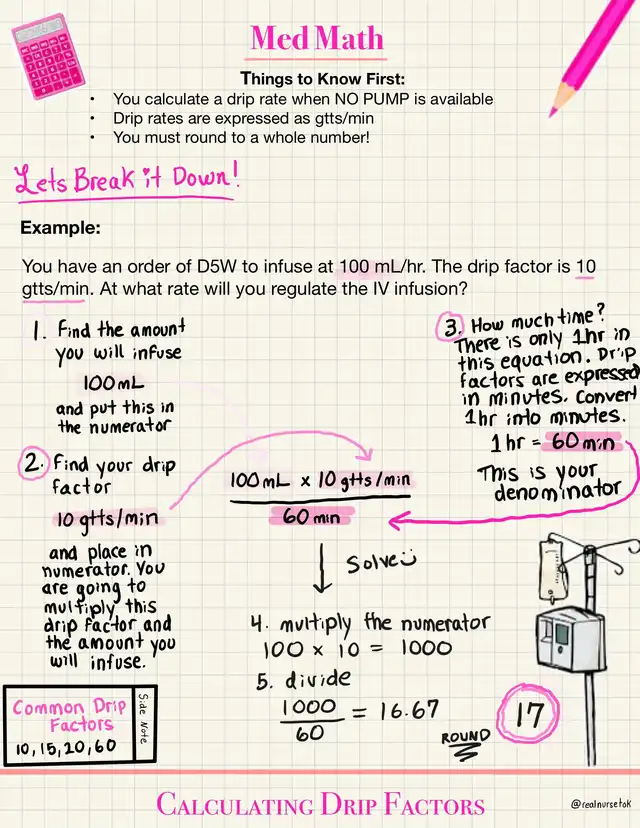 Med Math
Things to Know First:
• You calculate a drip rate when NO PUMP is available
• Drip rates are expressed as gtts/min
• You must round to a whole number!
Lets Break it Down!
Example:
You have an order of D5W to infuse at 100 mL/hr. The drip factor is 10
gtts/min. At what rate will you regulate the IV infusion?
1. Find the amount
you will infuse
100mL
and put this in
the numerator
2. Find your drip
factor
10 gtts/min
and place in
numerator. You
are going to
multiply this
drip factor and
the amount you
will infuse.
3. How much time?
There is only 1hr in
this equation. Drip
factors are expressed
in minutes. Convert
1hr into minutes.
1 hr = 60 min
This is your
denominator
100mL x 10 gtts/min
60 min
Solve
4. multiply the numerator
100 x 10 = 1000
5. divide
1000
60
= 16.67
ROUND
17
Common Drip
Factors
10, 15, 20, 60
Side Note
CALCULATING DRIP FACTORS
@realnursetok